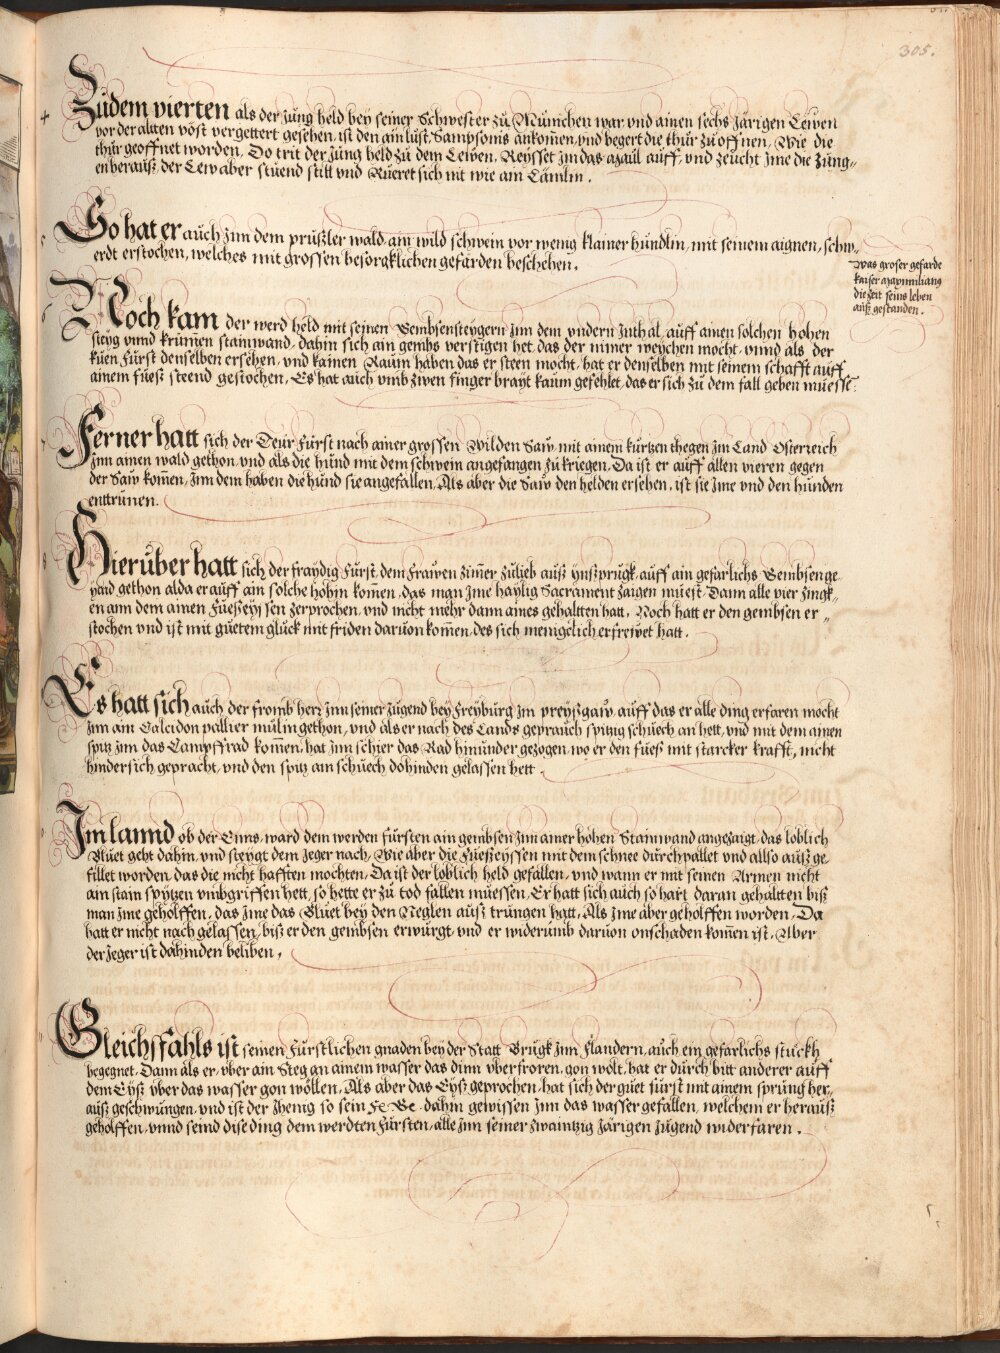 305.
Zudem vierten als der Jung held bey seiner Schwester zu München war vnd ainen sechs Järigen Lewen
vor der altten vöst vergettert gesehen, ist den ain lust Sampsonis ankomen, vnd begert die thür zu öffnen, Wie die
thür geöffnet worden, Do trit der Jung held zu dem Lewen, Reysset Jm das maul auff, vnd zeucht Jme die Zung„
en herauß, der Lew aber stuend still vnd Rueret sich nit wie ain Lämlin.
5
So hat er auch Jnn dem prüßler wald ain wild schwein vor wenig klainer hündlin, mit seinem aignen, schw„
erdt erstochen, welches mit grossen besorgklichen gefärden beschehen.
Was groser gefärde
Kaiser Maximilianus
die Zeit seins leben
auß gestanden.
6
Noch kam der werd held mit seinen Gembsensteygern Jnn dem vndern Jnthal, auff ainen solchen hohen
steyg vnnd krümen stainwand, dahin sich ain gembs verstigen het, das der nimer weychen mocht, vnnd als der
küen Fürst denselben ersehen, vnd kainen Raum haben das er steen mocht, hat er denselben mit seinem schafft auff
ainem fueß steend gestochen, Es hat auch vmb zwen finger brayt kaum gefehlet, das er sich zu dem fall geben muesste
7
Ferner hatt sich der Teur Fürst nach ainer grossen Wilden Saw, mit ainem kurtzen thegen Jm Land Osterreich
Jnn ainen wald gethon, vnd als die hund mit dem schwein angefangen zu kriegen, Da ist er auff allen vieren gegen
der Saw komen, Jnn dem haben die hund sie angefallen, Als aber die Saw den helden ersehen, ist sie Jme vnd den hunden
enttrunen.
8
Hierüber hatt sich der fraydig Fürst, dem Frawen zimer zu lieb auß ynßprugk, auff ain gefärlichs Gembsenge„
yaid gethon alda er auff ain solche höhin komen, das man Jme haylig Sacrament zaigen muest, Dann alle vier Zingk„
en ann dem ainen Fueßeyssen zerprochen, vnd nicht mehr dann aines gehaltten hatt, Noch hatt er den gembsen er„
stochen vnd ist mit guetem glück mit friden daruon komen, des sich menigelich erfrewet hatt.
Es hatt sich auch der fromb herr Jnn seiner Jugend bey Freyburg Jm preyßgaw, auff das er alle ding erfaren möcht
Jnn ain Calcidon pallier mülin gethon, vnd als er nach des Lands geprauch spitzig schuech an hett, vnd mit dem ainen
spitz Jnn das Campffrad komen, hat Jnn schier das Rad hinunder gezogen, wo er den fueß mit starcker krafft, nicht
hindersich gepracht, vnd den spitz am schuech dohinden gelassen hett.
Jm lannd ob der Enns, ward dem werden fürsten ain gembsen Jnn ainer hohen Stainwand angezaigt, das löblich
Bluet geht dahin, vnd steygt dem Jeger nach, Wie aber die Fueßeyssen mit dem schnee durchpallet vnd allso auß ge
fillet worden, das die nicht hafften mochten, Da ist der löblich held gefallen, vnd wann er mit seinen Armen nicht
am stain spytzen vmbgriffen hett, so hette er zu tod fallen muessen, Er hatt sich auch so hart daran gehaltten biß
man Jme geholffen, das Jme das Bluet bey den Neglen auß trungen hatt, Als Jme aber geholffen worden, Da
hatt er nicht nach gelassen, biß er den gembsen erwürgt, vnd er widerumb daruon onschaden komen ist, Aber
der Jeger ist dahinden beliben,
Gleichsfahls ist seinen Fürstlichen gnaden bey der Statt Brugk Jnn Flandern, auch ein gefärlichs stückh
begegnet, Dann als er vber ain Steg an ainem wasser das dinn vberfroren, gon wolt, hat er durch bitt anderer auff
dem Eyß vber das wasser gon wöllen, Als aber das Eyß geprochen, hat sich der guet fürst mit ainem sprung her„
auß geschwungen, vnd ist der Jhenig so sein dahin gewissen Jnn das wasser gefallen, welchem er herauß
geholffen, vnnd seind dise ding dem werdten Fürsten, alle Jnn seiner zwaintzig Järigen Jugend widerfaren.